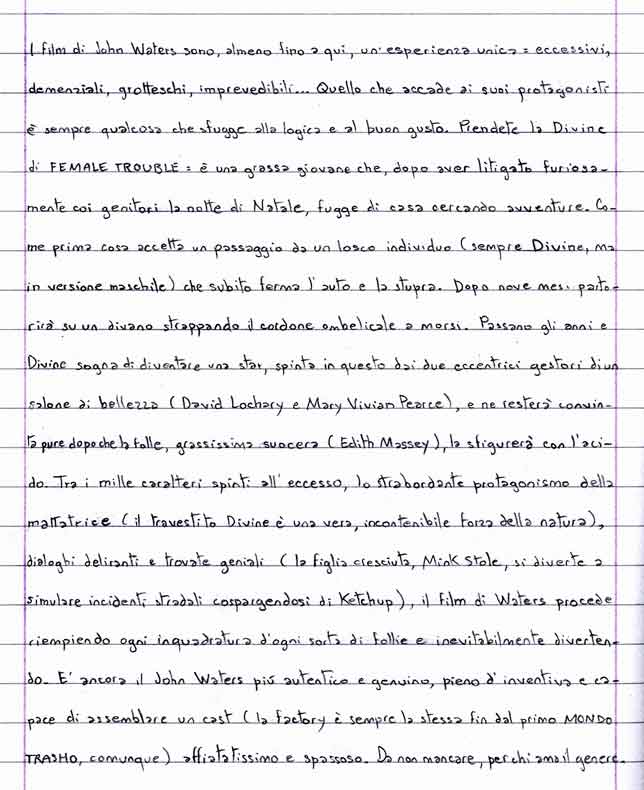 I film di John Waters sono, almeno fino a qui, un'esperienza unica: eccessivi,
demenziali, grotteschi, imprevedibili... Quello che accade ai suoi protagonisti
è sempre qualcosa che sfugge alla logica e al buon gusto. Prendete la Divine
di FEMALE TROUBLE: è una grassa giovane che, dopo aver litigato furiosa-
mente coi genitori la notte di Natale, fugge di casa cercando avventure. Co-
me prima cosa accetta un passaggio da un losco individuo (sempre Divine, ma
in versione maschile) che subito ferma l'auto e la stupra. Dopo nove mesi parto-
rirà su un divano strappando il cordone ombelicale a morsi. Passano gli anni e
Divine sogna di diventare una star, spinta in questo dai due eccentrici gestori di un
salone di bellezza (David Lochary e Mary Vivian Pearce), e ne resterà convin-
ta pure dopo che la folle, grassissima suocera (Edith Massey), la sfigurerà con l'aci-
do. Tra i mille caratteri spinti all'eccesso, lo strabordante protagonismo della
mattatrice (il travestito Divine è una vera, incontenibile forza della natura),
dialoghi deliranti e trovate geniali (la figlia cresciuta, Mink Stole, si diverte a
simulare incidenti stradali cospargendosi di Ketchup), il film di Waters procede
riempiendo ogni inquadratura d'ogni sorta di follie e inevitabilmente diverten-
do. E' ancora il John Waters più autentico e genuino, pieno d'inventiva e ca-
pace di assemblare un cast (la factory è sempre la stessa fin dal primo MONDO
TRASHO, comunque) affiatatissimo e spassoso. Da non mancare, per chi ama il genere.